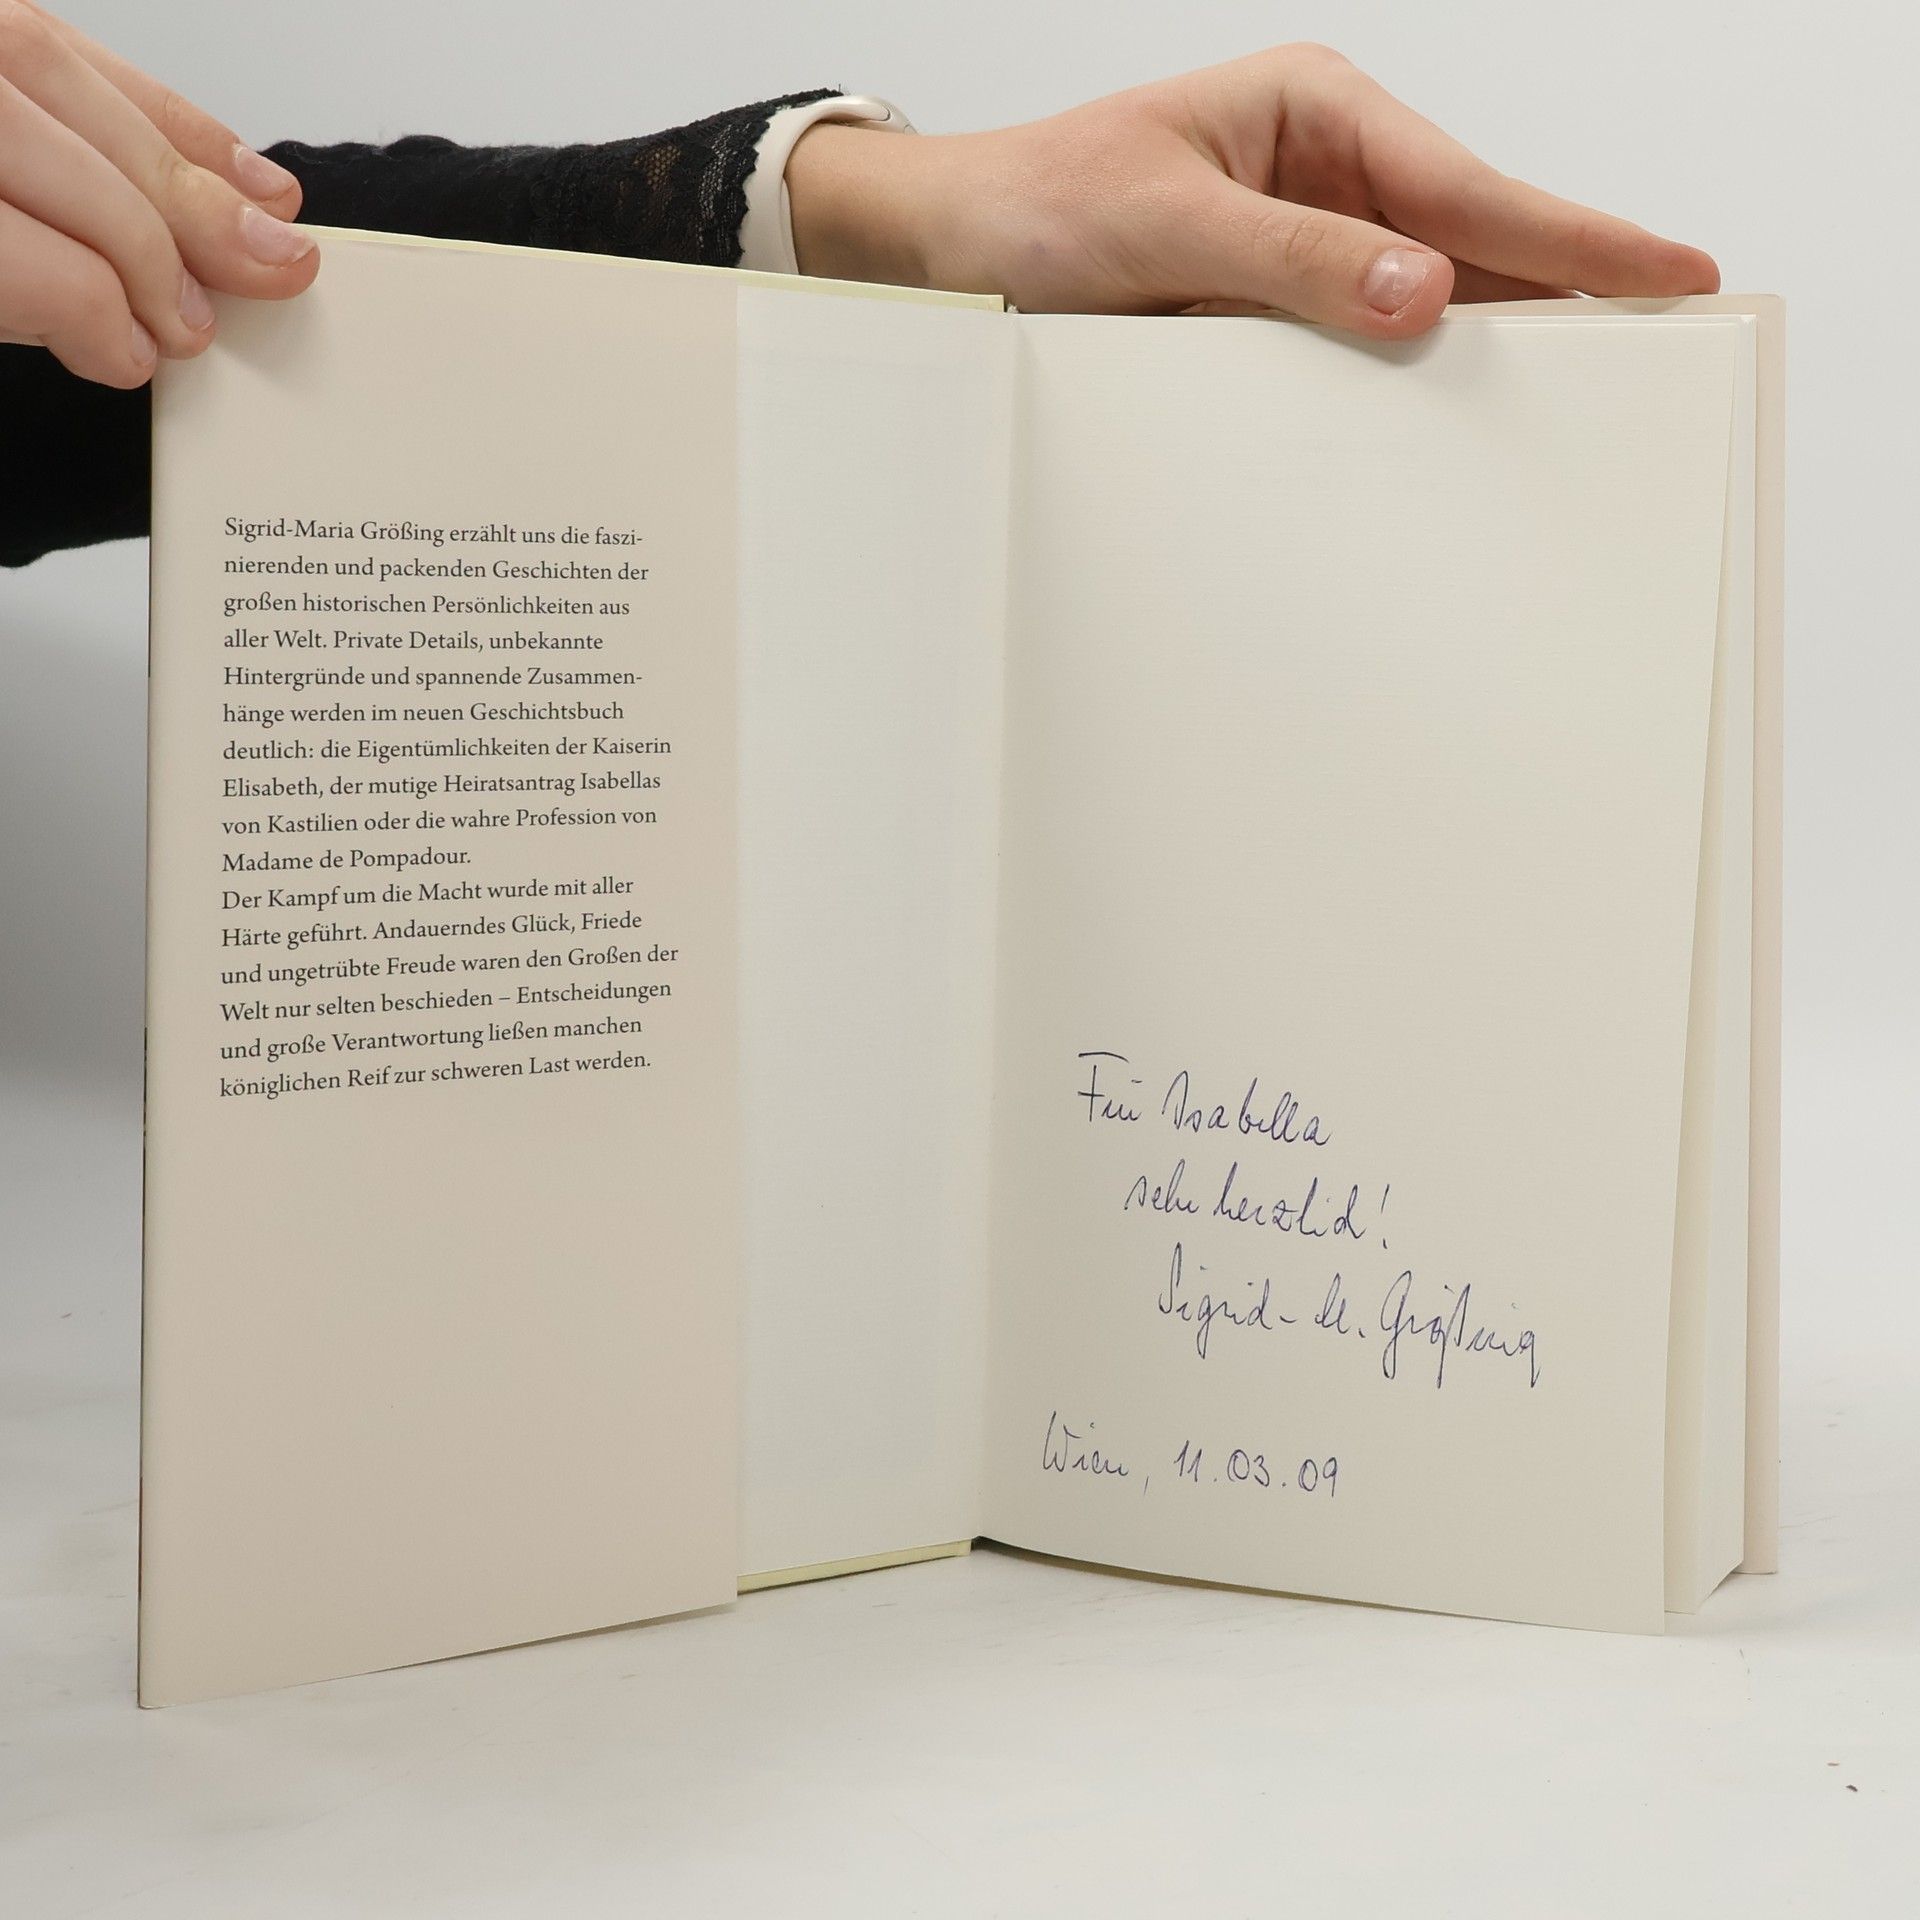 Sigrid-Maria Größing erzählt uns die faszi-
nierenden und packenden Geschichten der
großen historischen Persönlichkeiten aus
aller Welt. Private Details, unbekannte
Hintergründe und spannende Zusammen-
hänge werden im neuen Geschichtsbuch
deutlich: die Eigentümlichkeiten der Kaiserin
Elisabeth, der mutige Heiratsantrag Isabellas
von Kastilien oder die wahre Profession von
Madame de Pompadour.
Der Kampf um die Macht wurde mit aller
Härte geführt. Andauerndes Glück, Friede
und ungetrübte Freude waren den Großen der
Welt nur selten beschieden – Entscheidungen
und große Verantwortung ließen manchen
königlichen Reif zur schweren Last werden.
Für Isabella
sehr herzlich!
Sigrid-M. Größing
Wien, 11.03.09